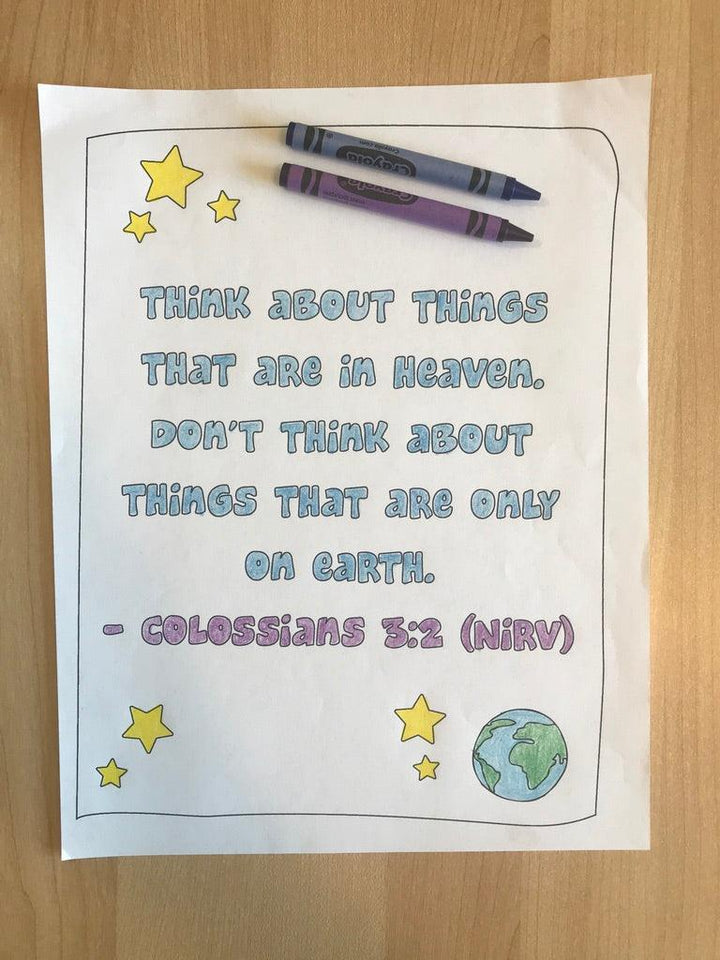 Crayola
Crayola.com
Crayola
Think about things
that are in heaven.
Don't think about
things that are only
on earth.
- Colossians 3:2 (NiRV)